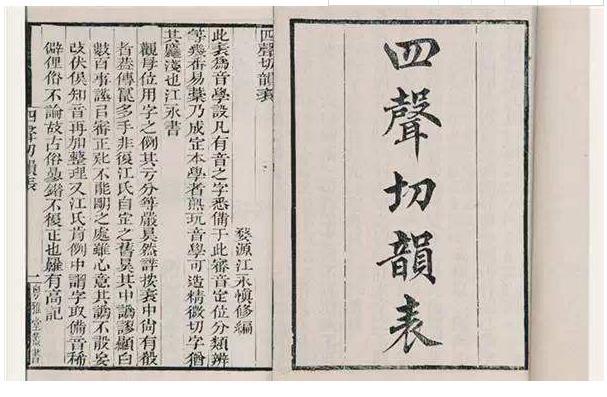 四聲切韻表
四聲切韻表
婺源江永慎修編
此表為音學設凡有音之字悉備于此審音定位分類辨
等幾番易藁乃成定本學者熟玩音學可造精微切字猶
其麤淺也江永書
觀母位用字之例其分等嚴矣然詳按表中尚有
者葢傳寫多手非復江氏自定之舊矣其中譌謬顯白
數百事謹已審正不能之處雖心意其譌不敢妄
改伏俟知音再加整理又江氏例中謂字取備音稀
僻俚俗不論故古俗錯不復正也羅有高記
四聲切韻表 一 粵雅堂叢書